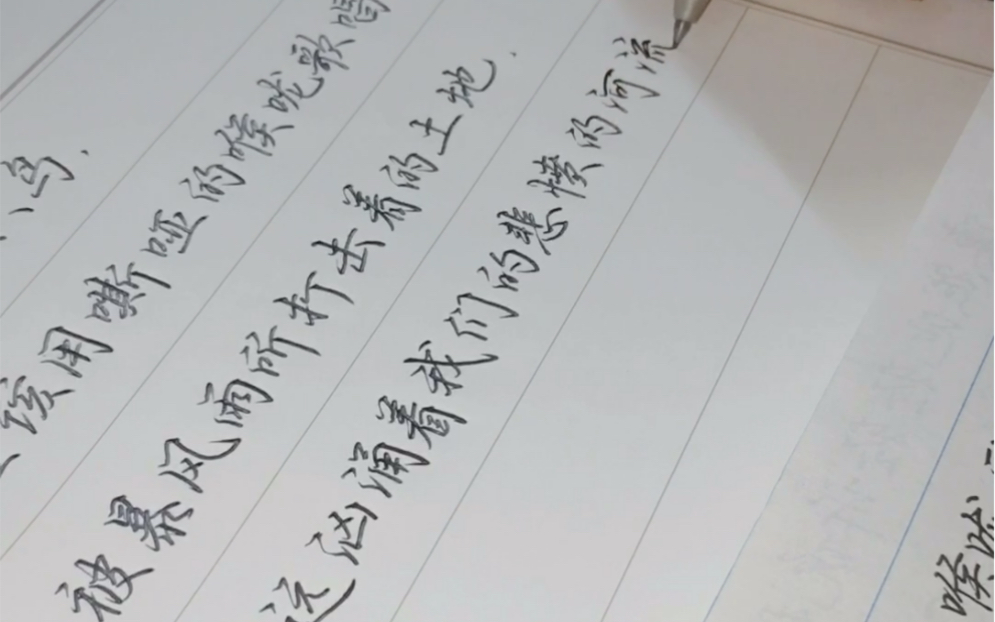 鸟,
该用嘶哑的喉咙歌唱
被暴风雨所打击着的土地,
远汹涌着我们的悲愤的河流
喉咙